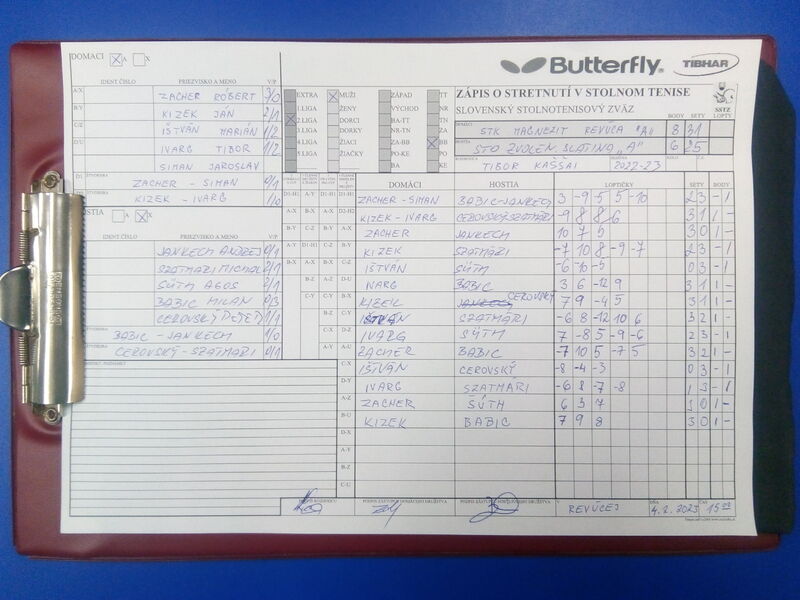 DOMACI X X
Butterfly
TIBHAR
IDENT ČÍSLO PRIEZVISKO A MENO V/P
A/X ZACHER RÓBERT 3/0
KIZEK JÁN 2/1
C/Z IŠTVÁN MARIÁN 1/2
D/U IVARG TIBOR 1/2
SIMAN JAROSLAV
D1 ZACHER - SIMAN 0/1
KIZEK - IVARG 1/0
EXTRA MUŽI ZÁPAD TT
1.LIGA ŽENY VÝCHOD NR
2.LIGA DORCI BA-TT TN
3.LIGA DORKY NR-TN ZA
4.LIGA ŽIACI ZA-BB BB
5.LIGA ŽIAČKY PO-KE PO
KE
ZÁPIS O STRETNUTÍ V STOLNOM TENISE
SLOVENSKÝ STOLNOTENISOVÝ ZVÄZ
SSTZ
BODY SETY LOPTY
DOMÁCI STK MAGNEZIT REVÚCA "A" 8 31
HOSTIA STO ZVOLEN. SLATINA "A" 6 25
ROZHODCA TIBOR KAŠŠAI 2022-23
HOSTIA X
IDENT ČÍSLO PRIEZVISKO A MENO V/P
JANKECH ANDREJ 0/1
SZATMÁRI MICHAL
SÚTH AGOS 2/1
BABIC MILAN 0/3
CEROVSKÝ PETER 1/1
BABIC - JANKECH 1/0
CEROVSKÝ - SZATMÁRI 0/1
DOMÁCI HOSTIA LOPTIČKY SETY BODY
ZACHER - SIMAN BABIC-JANKECH 3 -9 5 5 -10 2 3 - 1
KIZEK - IVARG CEROVSKÝ SZATMÁRI -9 8 8 6 3 1 1 -
ZACHER JANKECH 10 7 5 3 0 1 -
KIZEK SZATMÁRI -7 10 8 -9 -7 2 3 - 1
IŠTVÁN SÚTH -6 -10 -5 0 3 - 1
IVARG BABIC 3 6 -12 9 3 1 1 -
KIZEK CEROVSKÝ 7 9 -4 5 3 1 1 -
IŠTVÁN SZATMÁRI -6 8 -12 10 6 3 2 1 -
IVARG SÚTH 7 -8 5 -9 -6 2 3 - 1
ZACHER BABIC -7 10 5 -7 5 3 2 1 -
IŠTVÁN CEROVSKÝ -8 -4 -3 0 3 - 1
IVARG SZATMÁRI -6 8 -7 -8 1 3 - 1
ZACHER ŠÚTH 6 3 7 3 0 1 -
KIZEK BABIC 7 9 8 3 0 1 -
PODPIS ROZHODCU PODPIS ZÁSTUPCU DOMÁCEHO DRUŽSTVA V REVÚCEJ DŇA 4.2.2023 ČAS 15